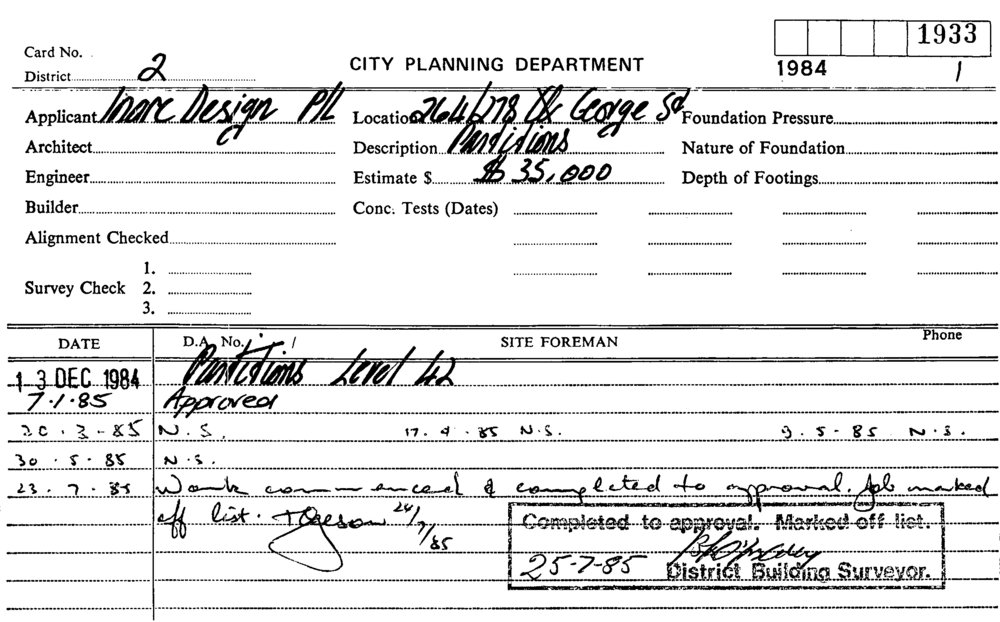 1933
Card No.
District 2
CITY PLANNING DEPARTMENT
1984 1
Applicant Inarc Design P/L
Location 264/278 George St
Foundation Pressure
Architect
Description Partitions
Nature of Foundation
Engineer
Estimate $ $ 35,000
Depth of Footings
Builder
Conc. Tests (Dates)
Alignment Checked
1.
Survey Check 2.
3.
DATE D.A. No. / SITE FOREMAN Phone
13 DEC 1984 Partitions Level 42
7.1.85 Approved
20.3-85 N.S. 17.4.85 N.S. 9.5-85 N.S.
30.5.85 N.S.
23.7.85 Work commenced & completed to approval. Job marked
off list. 24/7/85
Completed to approval. Marked off list.
25-7-85
District Building Surveyor.